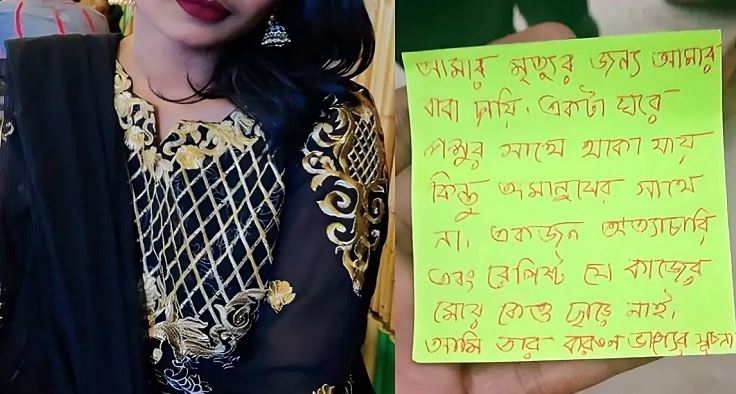 আমার মৃত্যুর জন্য আমার
বাবা দায়ি. একটা ঘরে
পশুর সাথে থাকা যায়
কিন্তু অমানুষের সাথে
না. একজন অত্যাচারি
এবং রেপিস্ট যে কাজের
মেয়ে কেও ছাড়ে নাই.
আমি তার করুণ ভাগ্যের সূচনা